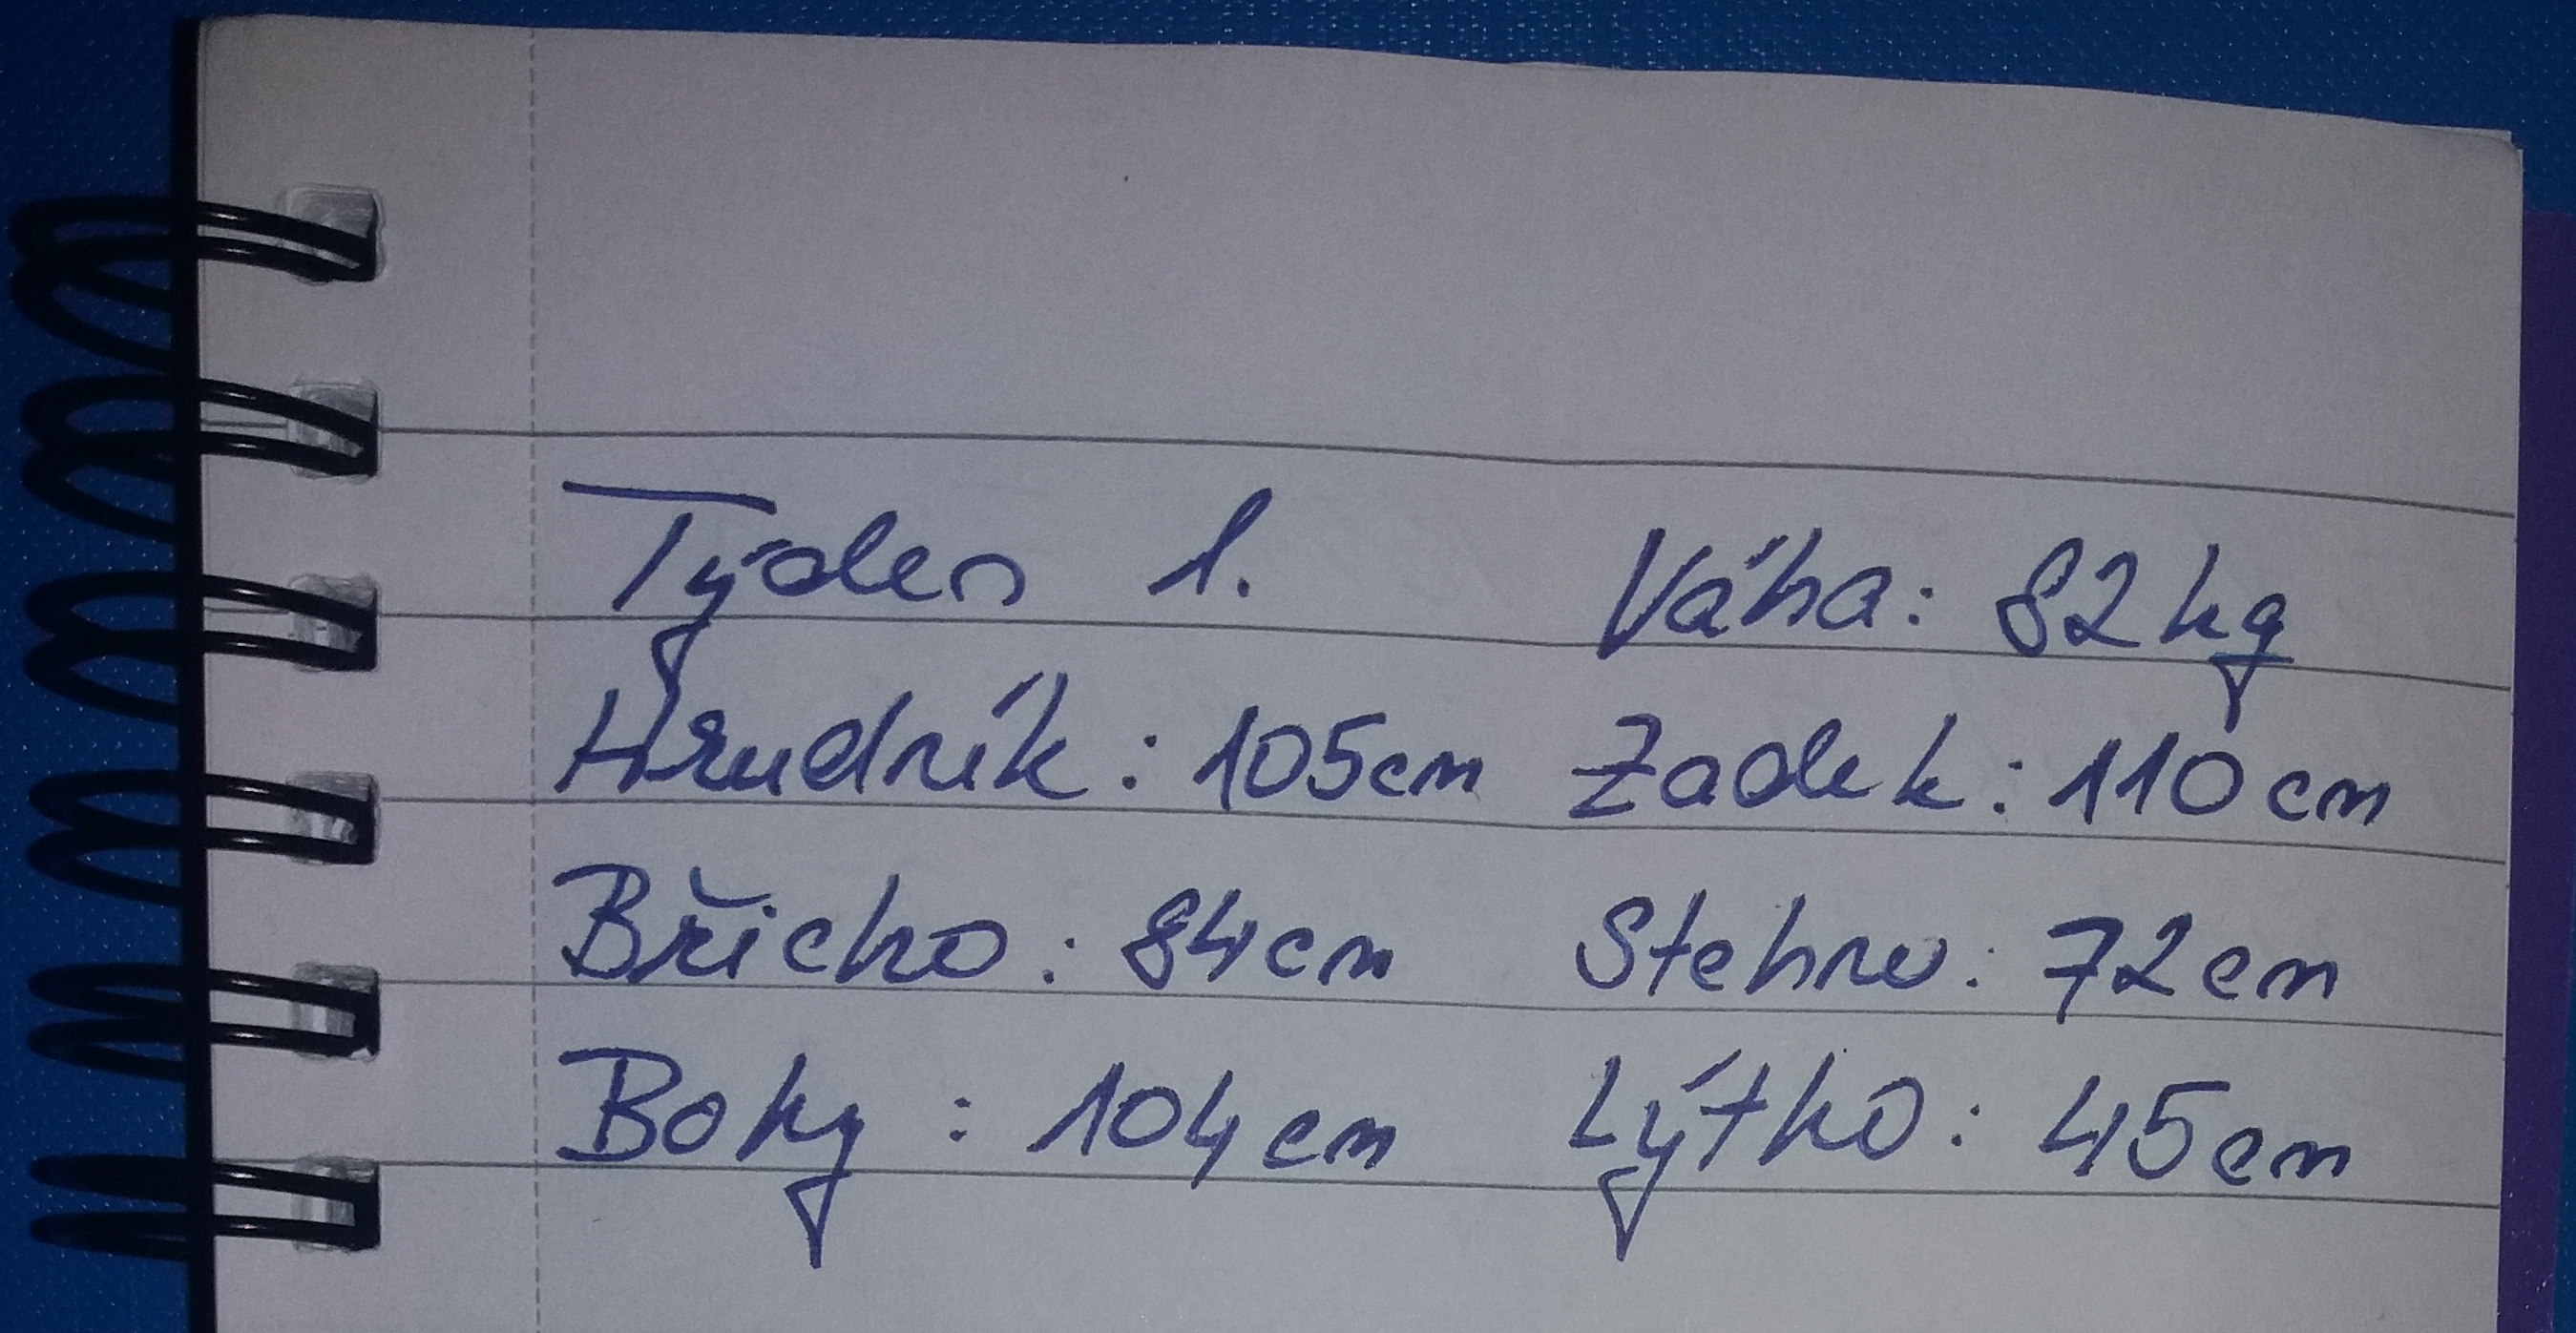 Týden 1. Váha: 82kg
Hrudník: 105cm Zadek: 110cm
Břicho: 84cm Stehno: 72cm
Boky: 104cm Lýtko: 45cm